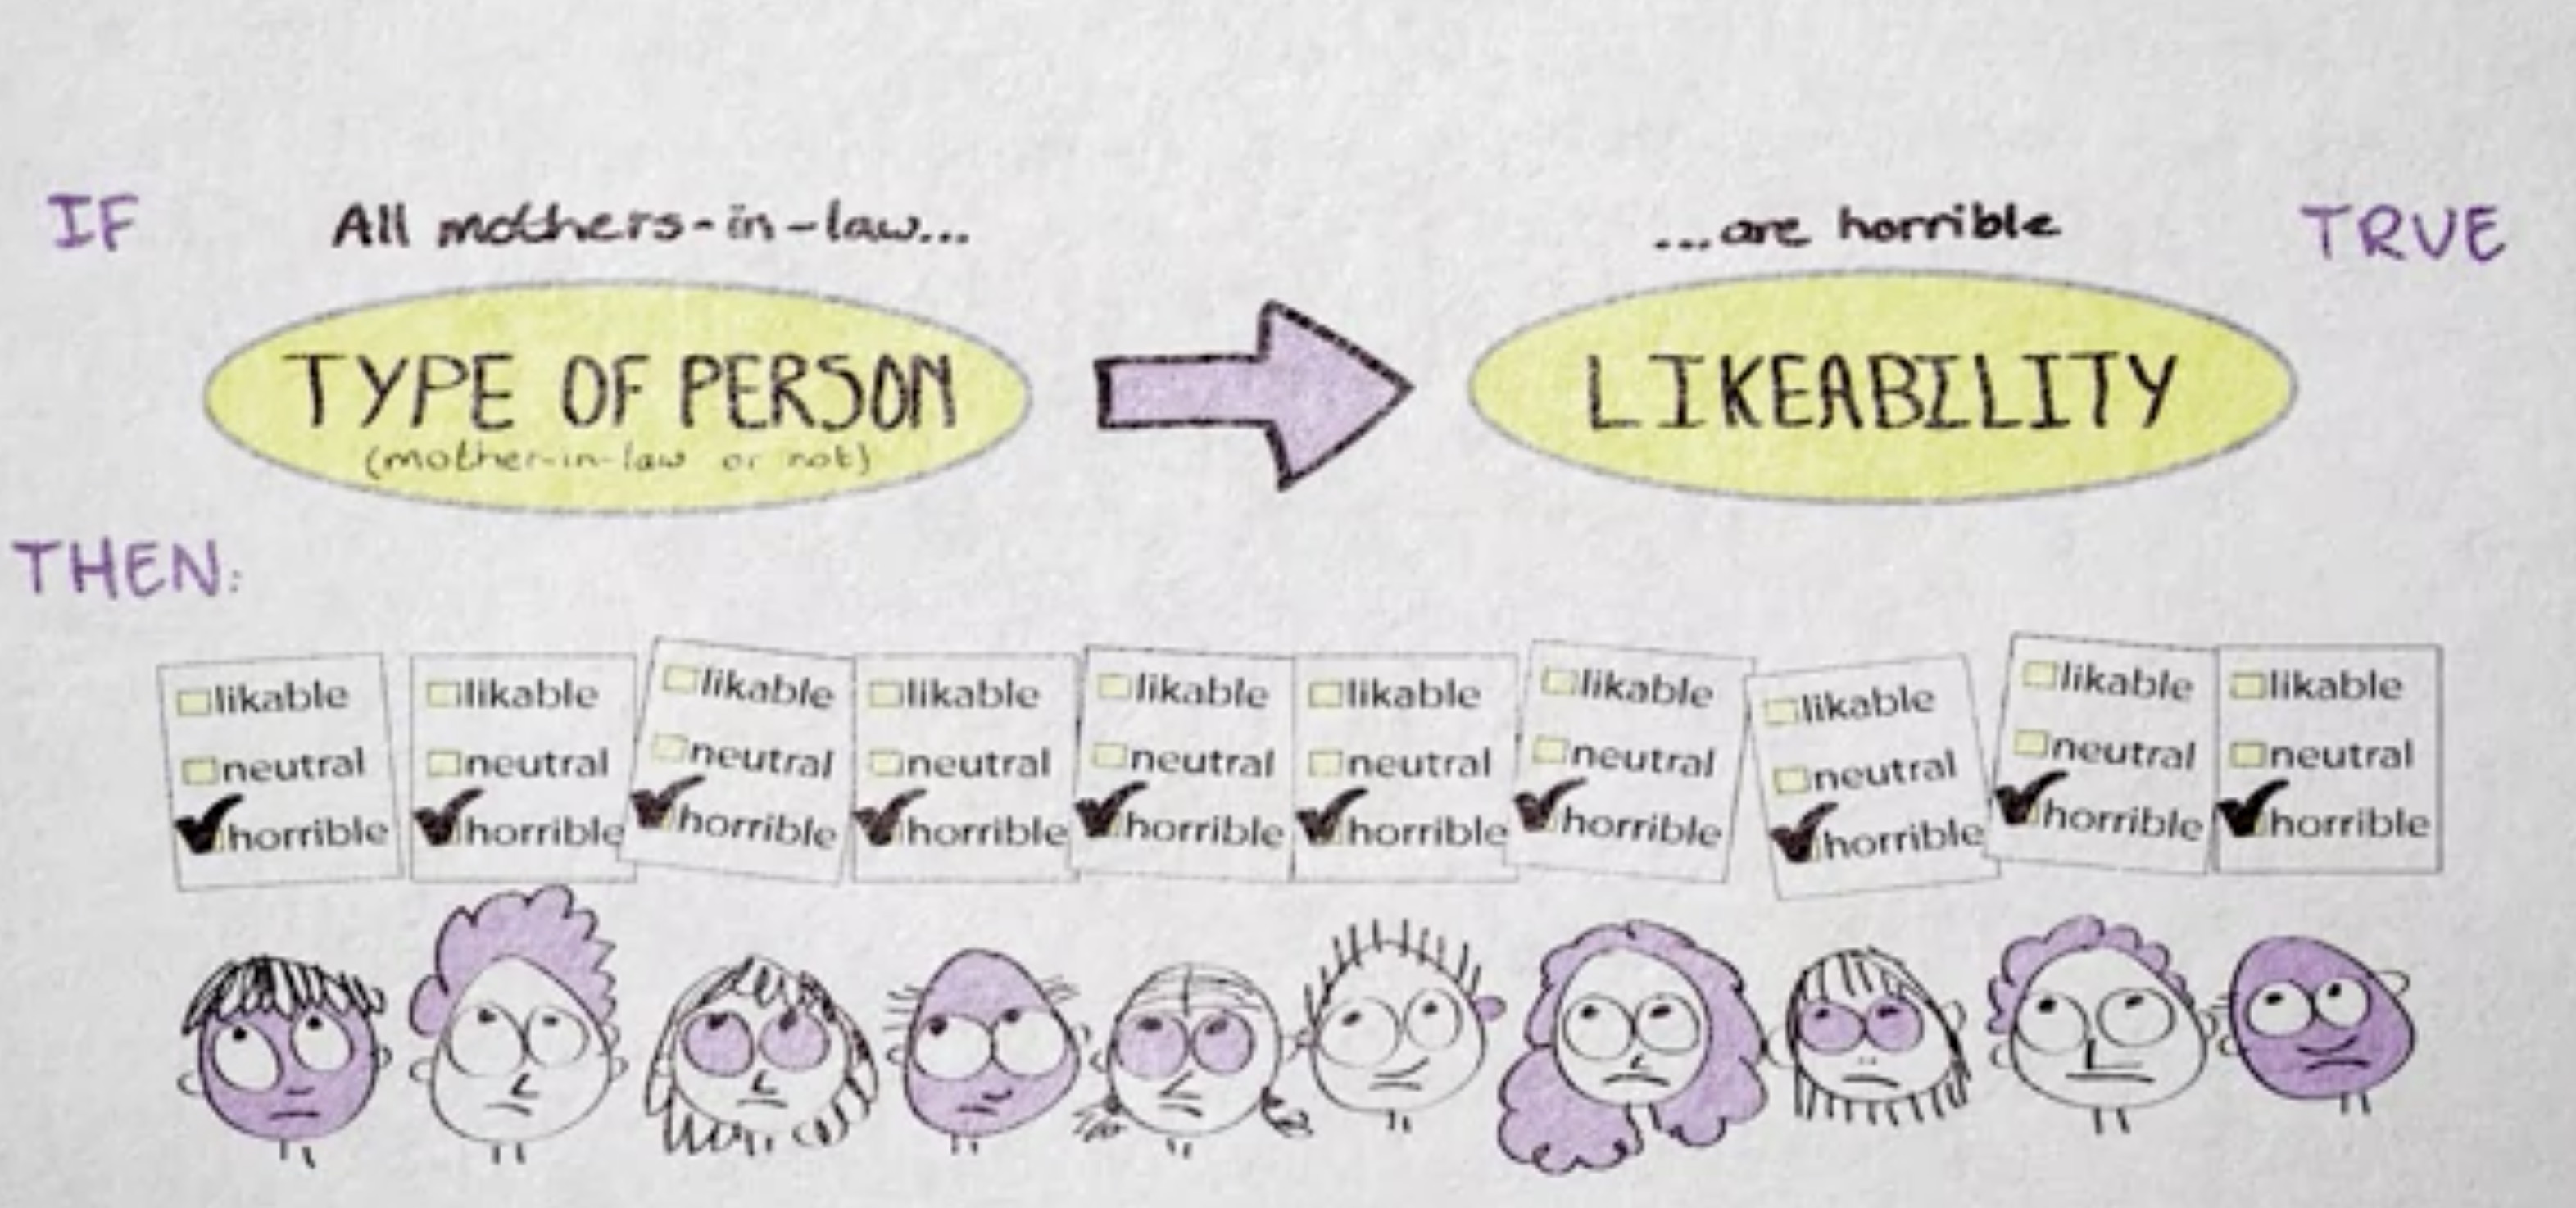 IF
All mothers-in-law...
...are horrible
TRUE
TYPE OF PERSON
(mother-in-law or not)
LIKEABILITY
THEN:
likable
neutral
horrible
likable
neutral
horrible
likable
neutral
horrible
likable
neutral
horrible
likable
neutral
horrible
likable
neutral
horrible
likable
neutral
horrible
likable
neutral
horrible
likable
neutral
horrible
likable
neutral
horrible